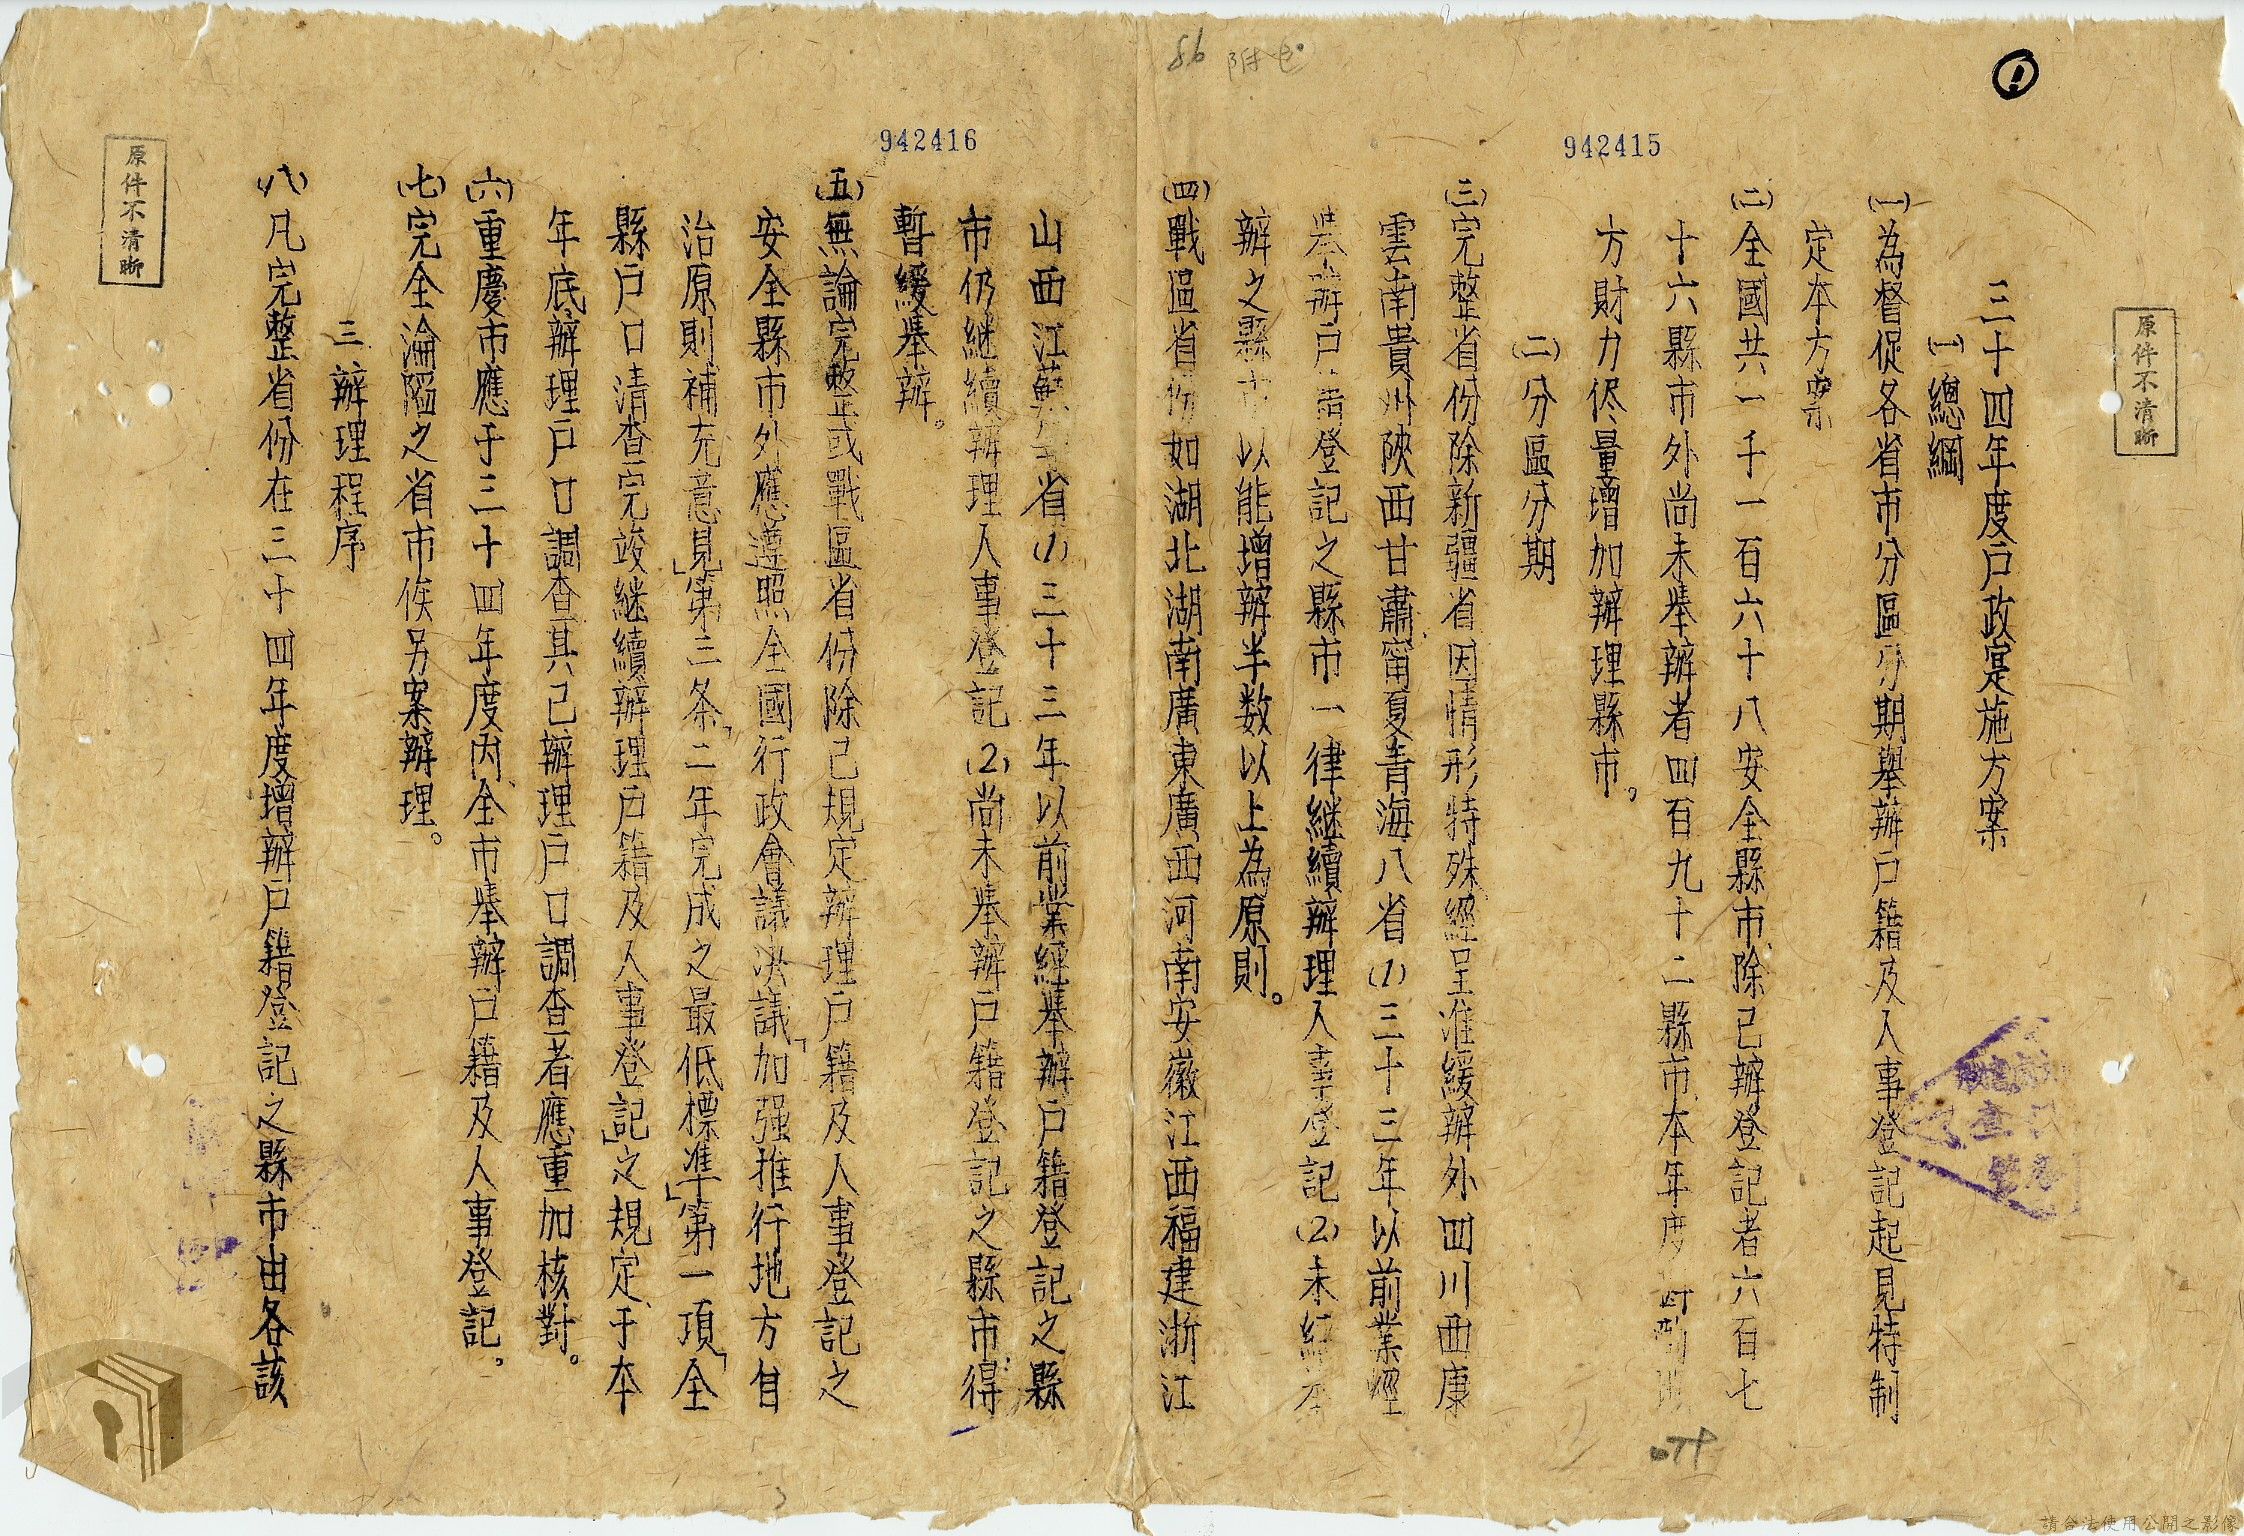 942415
942416
86 附
原件不清晰
三十四年度戶政寔施方案
(一)總綱
(一)為督促各省市分區分期舉辦戶籍及人事登記起見特制
定本方案
(二)全國共一千一百六十八安全縣市、除已辦登記者六百七
十六縣市外尚未舉辦者四百九十二縣市、本年度
方財力侭量增加辦理縣市。
(二)分區分期
(三)完整省份除新疆省因情形特殊經呈准緩辦外四川西康
雲南貴州陝西甘肅甯夏青海八省(1)三十三年以前業經
舉辦戶籍登記之縣市一律継續辦理人事登記(2)未經舉
辦之縣市以能增辦半数以上為原則。
(四)戰區省份如湖北湖南廣東廣西河南安徽江西福建浙江
山西江蘇 省(1)三十三年以前業經舉辦戶籍登記之縣
市仍継續辦理人事登記(2)尚未舉辦戶籍登記之縣市、得
暫緩舉辦。
(五)無論完整或戰區省份除己規定辦理戶籍及人事登記之
安全縣市外應遵照全國行政會議決議「加强推行地方自
治原則補充意見」第三条「二年完成之最低標準」第一項「全
縣戶口清查完竣継續辦理戶籍及人事登記」之規定、于本
年底辦理戶口調查其己辦理戶口調查者應重加核對。
(六)重慶市應于三十四年度內、全市舉辦戶籍及人事登記。
(七)完全淪陷之省市俟另案辦理。
三、辦理程序
(八)凡完整省份在三十四年度增辦戶籍登記之縣市由各該
原件不清晰
請合法使用公開之影像